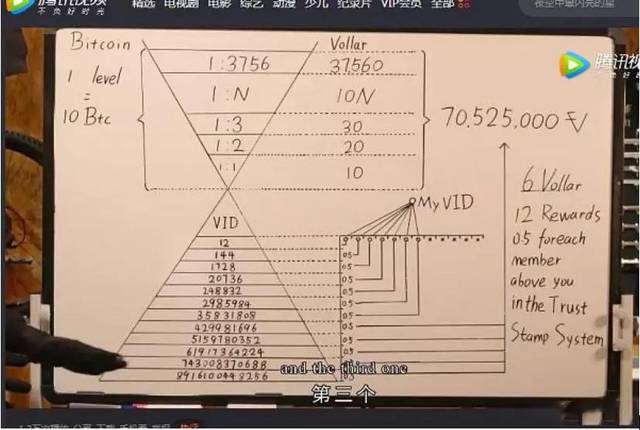 腾讯视频
不负好时光
精选 电视剧 电影 综艺 动漫 少儿 纪录片 VIP会员 全部
夜空中最闪亮的星
腾讯视频
Bitcoin
Vollar
1 level
=
10 Btc
1:3756
37560
1:N
10N
1:3
30
1:2
20
1:1
10
70.525.000
My VID
VID
12
144
1728
20736
248832
2985984
35831808
429981696
5159780352
61917364224
743008370688
8916100448256
0.5
0.5
0.5
0.5
0.5
0.5
0.5
0.5
0.5
0.5
0.5
6 Vollar
12 Rewards
0.5 foreach
member
above you
in the Trust
Stamp System
and the third one
第三个